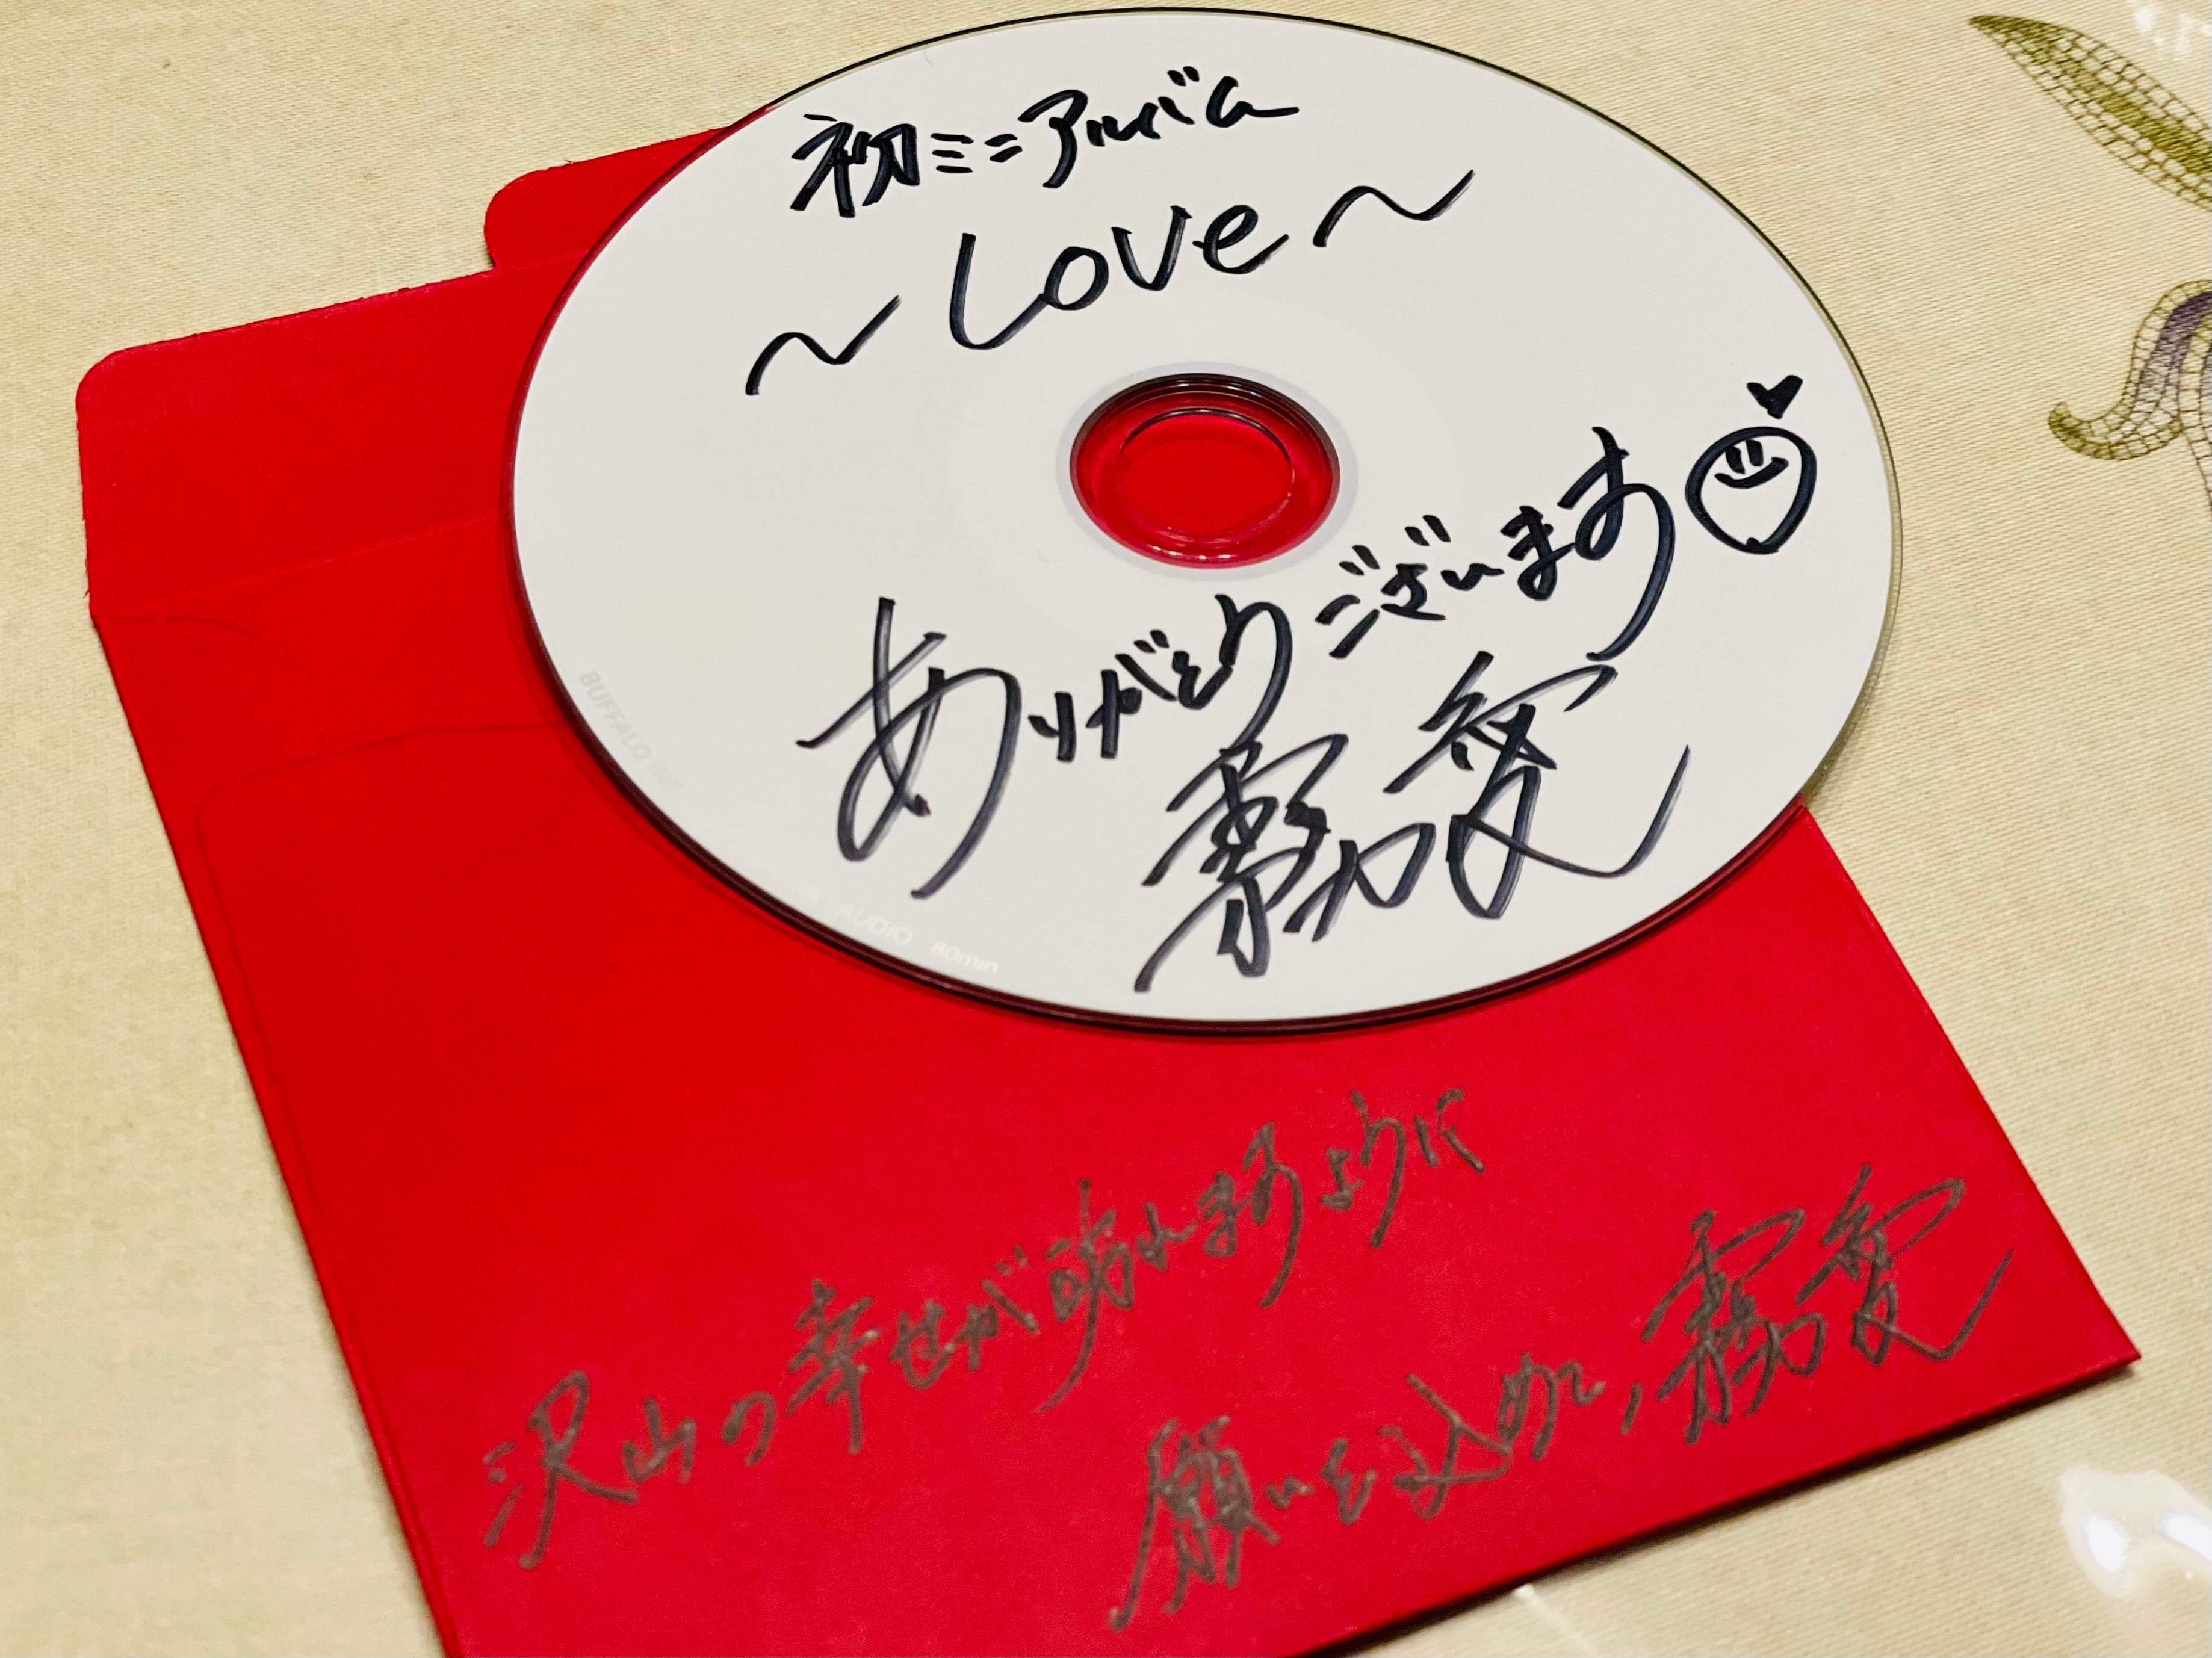 初ミニアルバム
～Love～
ありがとうございます
霧愛
BUFFALO INC.
AUDIO 80min
沢山の幸せが訪れますように
願いを込めて, 霧愛